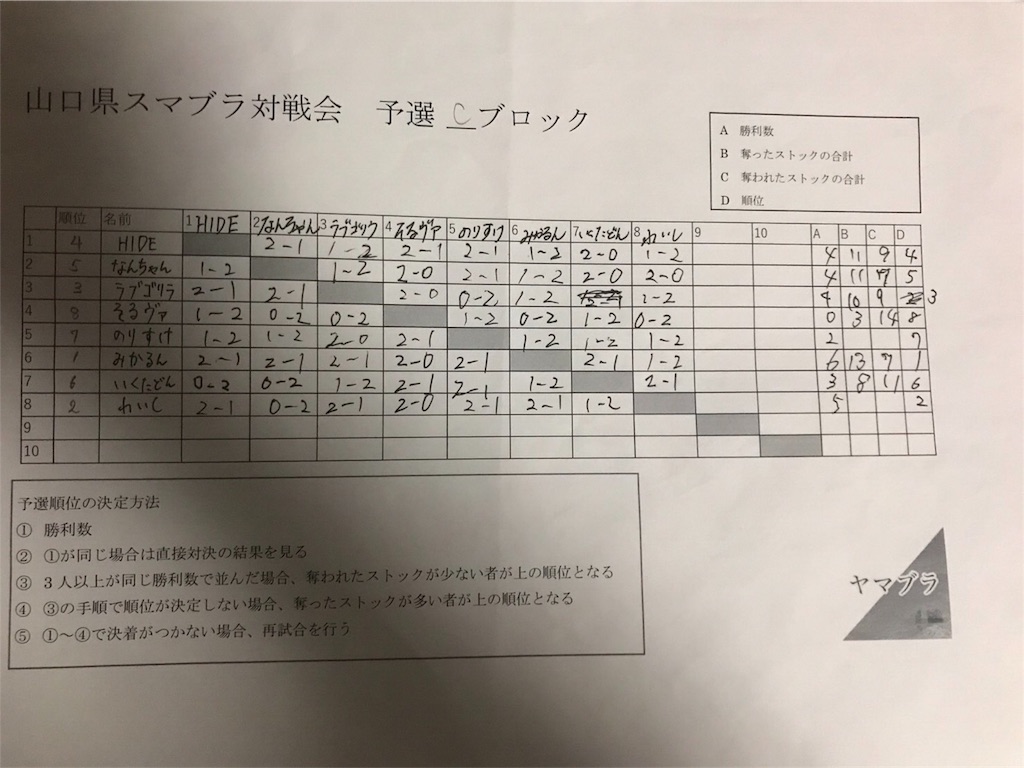 山口県スマブラ対戦会 予選 Cブロック
A 勝利数
B 奪ったストックの合計
C 奪われたストックの合計
D 順位
順位 名前 1 HIDE 2 なんちゃん 3 ラブゴリラ 4 そるヴァ 5 のりすけ 6 みかるん 7 いくたどん 8 れいし 9 10 A B C D
1 4 HIDE 2-1 1-2 2-1 2-1 1-2 2-0 1-2 4 11 9 4
2 5 なんちゃん 1-2 1-2 2-0 2-1 1-2 2-0 2-0 4 11 7 5
3 3 ラブゴリラ 2-1 2-1 2-0 0-2 1-2 1-2 4 10 9 3
4 8 そるヴァ 1-2 0-2 0-2 1-2 0-2 1-2 0-2 0 3 14 8
5 7 のりすけ 1-2 1-2 2-0 2-1 1-2 1-2 1-2 2 7
6 1 みかるん 2-1 2-1 2-1 2-0 2-1 2-1 1-2 6 13 7 1
7 6 いくたどん 0-2 0-2 1-2 2-1 2-1 1-2 2-1 3 8 11 6
8 2 れいし 2-1 0-2 2-1 2-0 2-1 2-1 1-2 5 2
9
10
予選順位の決定方法
① 勝利数
② ①が同じ場合は直接対決の結果を見る
③ 3人以上が同じ勝利数で並んだ場合、奪われたストックが少ない者が上の順位となる
④ ③の手順で順位が決定しない場合、奪ったストックが多い者が上の順位となる
⑤ ①~④で決着がつかない場合、再試合を行う
ヤマブラ